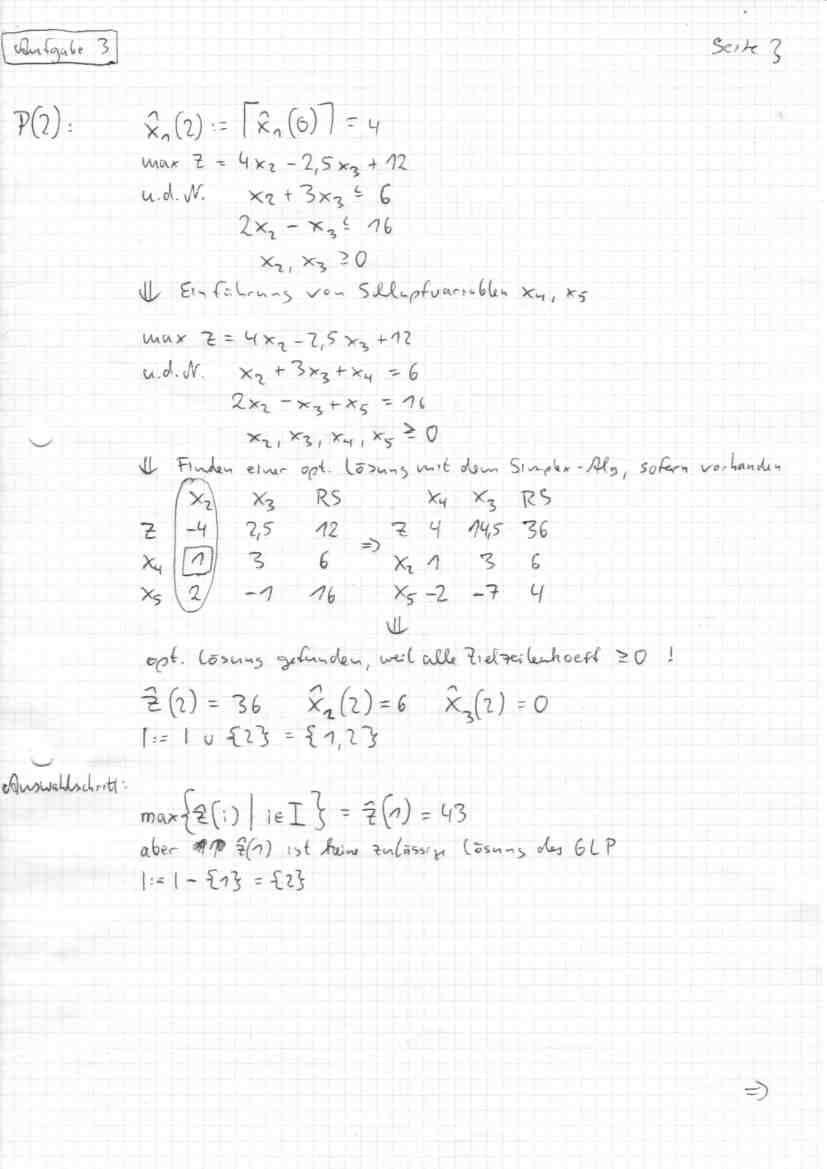 Aufgabe 3
Seite 3
P(2): x̂₁(2) := ⌈x̂₁(0)⌉ = 4
max z = 4x₂ - 2,5x₃ + 12
u.d.N. x₂ + 3x₃ ≤ 6
2x₂ - x₃ ≤ 16
x₂, x₃ ≥ 0
⇓ Einführung von Schlupfvariablen x₄, x₅
max z = 4x₂ - 2,5x₃ + 12
u.d.N. x₂ + 3x₃ + x₄ = 6
2x₂ - x₃ + x₅ = 16
x₂, x₃, x₄, x₅ ≥ 0
⇓ Finden einer opt. Lösung mit dem Simplex-Alg, sofern vorhanden
x₂ x₃ RS x₄ x₃ RS
z -4 2,5 12 ⇒ z 4 14,5 36
x₄ 1 3 6 x₂ 1 3 6
x₅ 2 -1 16 x₅ -2 -7 4
⇓
opt. Lösung gefunden, weil alle Zielzeilenkoeff ≥ 0 !
ẑ(2) = 36 x̂₂(2) = 6 x̂₃(2) = 0
I := I ∪ {2} = {1,2}
Auswahlschritt:
max{ẑ(i) | i∈I} = ẑ(1) = 43
aber ẑ(1) ist keine zulässige Lösung des GLP
I := I - {1} = {2}
⇒